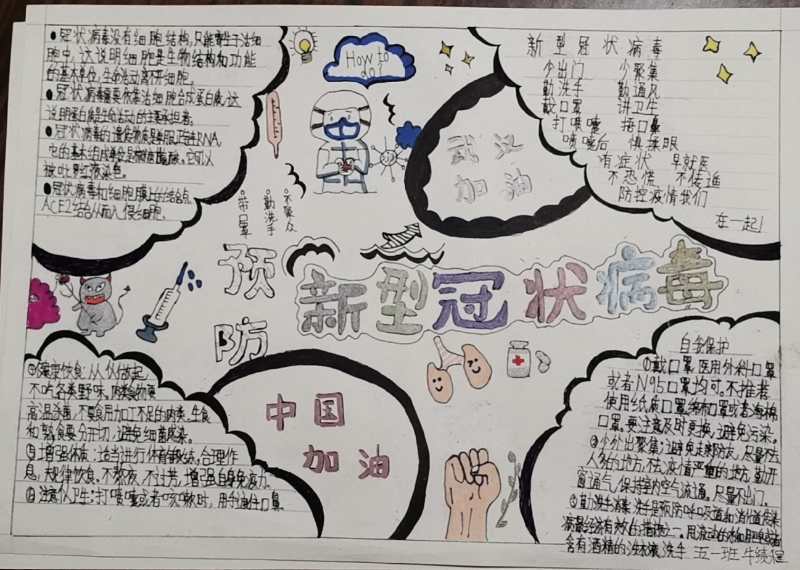 ●冠状病毒没有细胞结构,只能寄生于活细
胞中,这说明细胞是生物结构和功能
的基本单位,生命活动离不开细胞。
●冠状病毒需要依靠活细胞合成蛋白质,这
说明蛋白质是生命活动的主要承担者。
●冠状病毒的遗传物质是单股正链RNA,
它的基本组成单位是核糖核苷酸。它可以
被吡罗红染色。
●冠状病毒和细胞膜上的结合点
ACE2结合从而入侵细胞。
How to do!
新型冠状病毒
少出门 少聚集
勤洗手 勤通风
戴口罩 讲卫生
打喷嚏 捂口鼻
喷嚏后 慎揉眼
有症状 早就医
不恐慌 不传谣
防控疫情我们
在一起!
武汉
加油
带口罩
勤洗手
不聚众
预防
新型冠状病毒
①健康饮食:从
不吃各类野味,肉类
高温杀菌,不要食用加工不足的肉类,生食
和熟食要分开切,避免细菌感染。
②增强体质:适当进行体育锻炼,合理作
息,规律饮食,不熬夜,不过劳,增强自身免疫力。
③注意个人卫生:打喷嚏或者咳嗽时,用手遮住口鼻。
中国
加油
自我保护
①戴口罩:医用外科口罩
或者N95口罩均可。不推荐
使用纸质口罩,绵布口罩或者海棉
口罩,要注意及时更换,避免污染。
②少外出聚集:避免走亲访友,尽量不去
人多的地方,不去疫情严重的地方,勤开
窗通气,保持室内空气流通,尽量不出门。
③勤洗手消毒:洗手是预防呼吸道和消化道感染
病最经济有效的措施之一。用流动的水和肥皂或者
含有酒精的洗衣液洗手
五一班